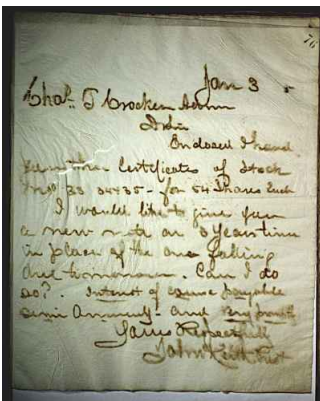 76
Jan 3
Chas. T Crocker
Enclosed I hand
you three Certificates of Stock
for 54 Shares Each
I would like to give you
a new note on 3 years time
in place of the one falling
due tomorrow. Can I do
so? Interest of course payable
semi Annualy - and
Yours Respectfully
John